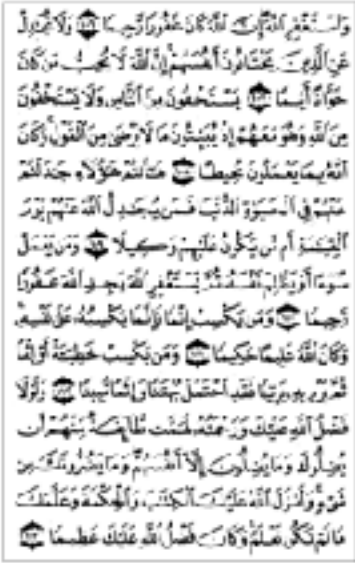 وَٱسْتَغْفِرِ ٱللَّهَ إِنَّ ٱللَّهَ كَانَ غَفُورًا رَّحِيمًا ١٠٦ وَلَا تُجَٰدِلْ
عَنِ ٱلَّذِينَ يَخْتَانُونَ أَنفُسَهُمْ إِنَّ ٱللَّهَ لَا يُحِبُّ مَن كَانَ
خَوَّانًا أَثِيمًا ١٠٧ يَسْتَخْفُونَ مِنَ ٱلنَّاسِ وَلَا يَسْتَخْفُونَ
مِنَ ٱللَّهِ وَهُوَ مَعَهُمْ إِذْ يُبَيِّتُونَ مَا لَا يَرْضَىٰ مِنَ ٱلْقَوْلِ وَكَانَ
ٱللَّهُ بِمَا يَعْمَلُونَ مُحِيطًا ١٠٨ هَٰٓأَنتُمْ هَٰٓؤُلَآءِ جَٰدَلْتُمْ
عَنْهُمْ فِى ٱلْحَيَوٰةِ ٱلدُّنْيَا فَمَن يُجَٰدِلُ ٱللَّهَ عَنْهُمْ يَوْمَ
ٱلْقِيَٰمَةِ أَم مَّن يَكُونُ عَلَيْهِمْ وَكِيلًا ١٠٩ وَمَن يَعْمَلْ
سُوٓءًا أَوْ يَظْلِمْ نَفْسَهُۥ ثُمَّ يَسْتَغْفِرِ ٱللَّهَ يَجِدِ ٱللَّهَ غَفُورًا
رَّحِيمًا ١١٠ وَمَن يَكْسِبْ إِثْمًا فَإِنَّمَا يَكْسِبُهُۥ عَلَىٰ نَفْسِهِۦ
وَكَانَ ٱللَّهُ عَلِيمًا حَكِيمًا ١١١ وَمَن يَكْسِبْ خَطِيٓـَٔةً أَوْ إِثْمًا
ثُمَّ يَرْمِ بِهِۦ بَرِيٓـًٔا فَقَدِ ٱحْتَمَلَ بُهْتَٰنًا وَإِثْمًا مُّبِينًا ١١٢ وَلَوْلَا
فَضْلُ ٱللَّهِ عَلَيْكَ وَرَحْمَتُهُۥ لَهَمَّت طَّآئِفَةٌ مِّنْهُمْ أَن
يُضِلُّوكَ وَمَا يُضِلُّونَ إِلَّآ أَنفُسَهُمْ وَمَا يَضُرُّونَكَ مِن
شَىْءٍ وَأَنزَلَ ٱللَّهُ عَلَيْكَ ٱلْكِتَٰبَ وَٱلْحِكْمَةَ وَعَلَّمَكَ
مَا لَمْ تَكُن تَعْلَمُ وَكَانَ فَضْلُ ٱللَّهِ عَلَيْكَ عَظِيمًا ١١٣